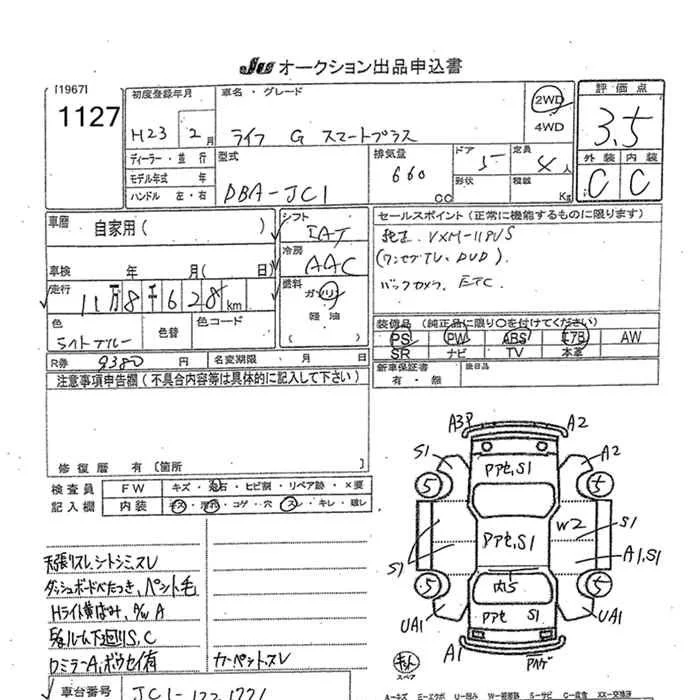 JU オークション出品申込書
[1967]
1127
初度登録年月
H23 2月
車名・グレード
ライフ G スマートプラス
2WD
4WD
評価点
3.5
外装 内装
C C
ディーラー・並行
モデル年式 年
ハンドル 左・右
型式
DBA-JC1
排気量
660 CC
ドア 5
形状
定員 4人
積載 Kg
車歴 自家用( )
車検 年 月( 日)
走行 11万8千628km
色 ライトブルー
色替
色コード
シフト IAT
冷房 AAC
燃料 ガソリン
軽油
セールスポイント(正常に機能するものに限ります)
純正 VXM-118VS
(ワンセグTV、DVD)
バックカメラ ETC
装備品(純正品に限り〇を付けてください)
PS PW ABS エアB AW
SR ナビ TV 本革
新車保証書
有・無
R券 9380円
名変期限 月 日
注意事項申告欄(不具合内容等は具体的に記入して下さい)
修復歴 有 〔箇所 〕
検査員 FW キズ・飛石・ヒビ割・リペア跡・×要
記入欄 内装 キズ・汚れ・コゲ・穴・スレ・キレ・破レ
天張リスレ、シートシミ、スレ
ダッシュボードベたつき、ペット毛
Hライト黄ばみ、A/W A
ルーム下廻りS、C
ロミラーA、ボウセイ有
カーペット、スレ
車台番号 JC1-
A3P A2
S1 A2
アアセ、S1
5 5
W2 S1
アアセ、S1
S1 A1,S1
5 5
内S
アアセ S1
UA1 UA1
A1
スペア